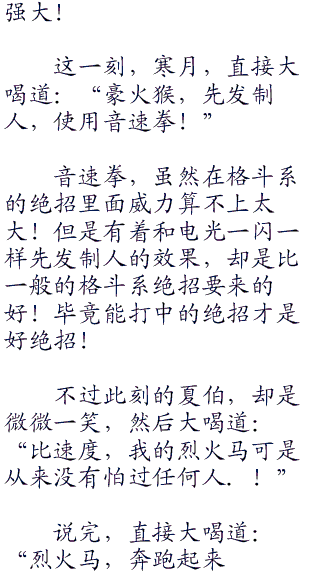 强大！
这一刻，寒月，直接大
喝道：“豪火猴，先发制
人，使用音速拳！”
音速拳，虽然在格斗系
的绝招里面威力算不上太
大！但是有着和电光一闪一
样先发制人的效果，却是比
一般的格斗系绝招要来的
好！毕竟能打中的绝招才是
好绝招！
不过此刻的夏伯，却是
微微一笑，然后大喝道：
“比速度，我的烈火马可是
从来没有怕过任何人．！”
说完，直接大喝道：
“烈火马，奔跑起来